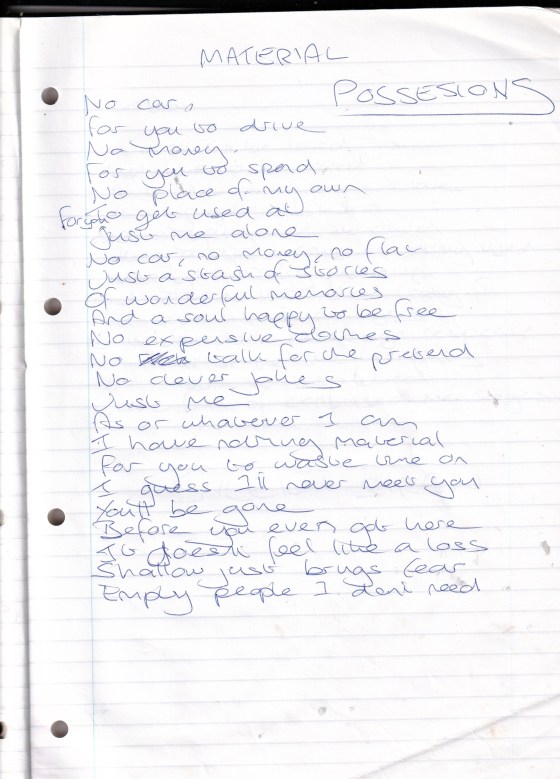 MATERIAL
POSSESIONS
No car,
for you to drive
No money.
For you to spend
No place of my own
For you to get used at
Just me alone
No car, no money, no flat
Just a stash of stories
Of wonderful memories
And a soul happy to be free
No expensive clothes
No talk for the pretend
No clever jokes
Just me
As or whatever I am
I have nothing material
For you to waste time on
I guess I'll never meet you
You'll be gone
Before you even got here
It doesn't feel like a loss
Shallow just brings fear
Empty people I don't need